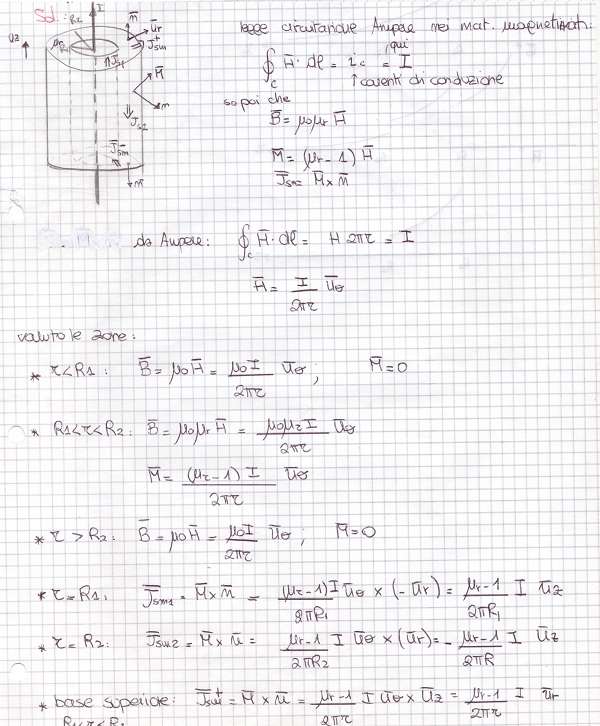 Sol:
R2
I
n̄
ūr
uz
μr R1
J̄sm+
J̄s1
M̄
n
Js2
J̄sm-
n̄
legge circuitazione Ampere nei mat. magnetizzati:
∮c H̄ · dl̄ = ic = I
qui
↑ correnti di conduzione
so poi che
B̄ = μ0μr H̄
M̄ = (μr - 1) H̄
J̄sm = M̄ × n̄
da Ampere: ∮c H̄ · dl̄ = H 2πr = I
H̄ = I/2πr ūθ
valuto le zone:
* r<R1: B̄ = μ0H̄ = μ0I/2πr ūθ ; M̄=0
* R1<r<R2: B̄ = μ0μr H̄ = μ0μrI/2πr ūθ
M̄ = (μr-1) I/2πr ūθ
* r > R2: B̄ = μ0H̄ = μ0I/2πr ūθ ; M̄=0
* r=R1: J̄sm1 = M̄ × n̄ = (μr-1)I/2πR1 ūθ × (-ūr) = μr-1/2πR1 I ūz
* r=R2: J̄sm2 = M̄ × n̄ = μr-1/2πR2 I ūθ × (ūr) = - μr-1/2πR I ūz
* base superiore: J̄sm+ = M̄ × n̄ = μr-1/2πr I ūθ × ūz = μr-1/2πr I ūr